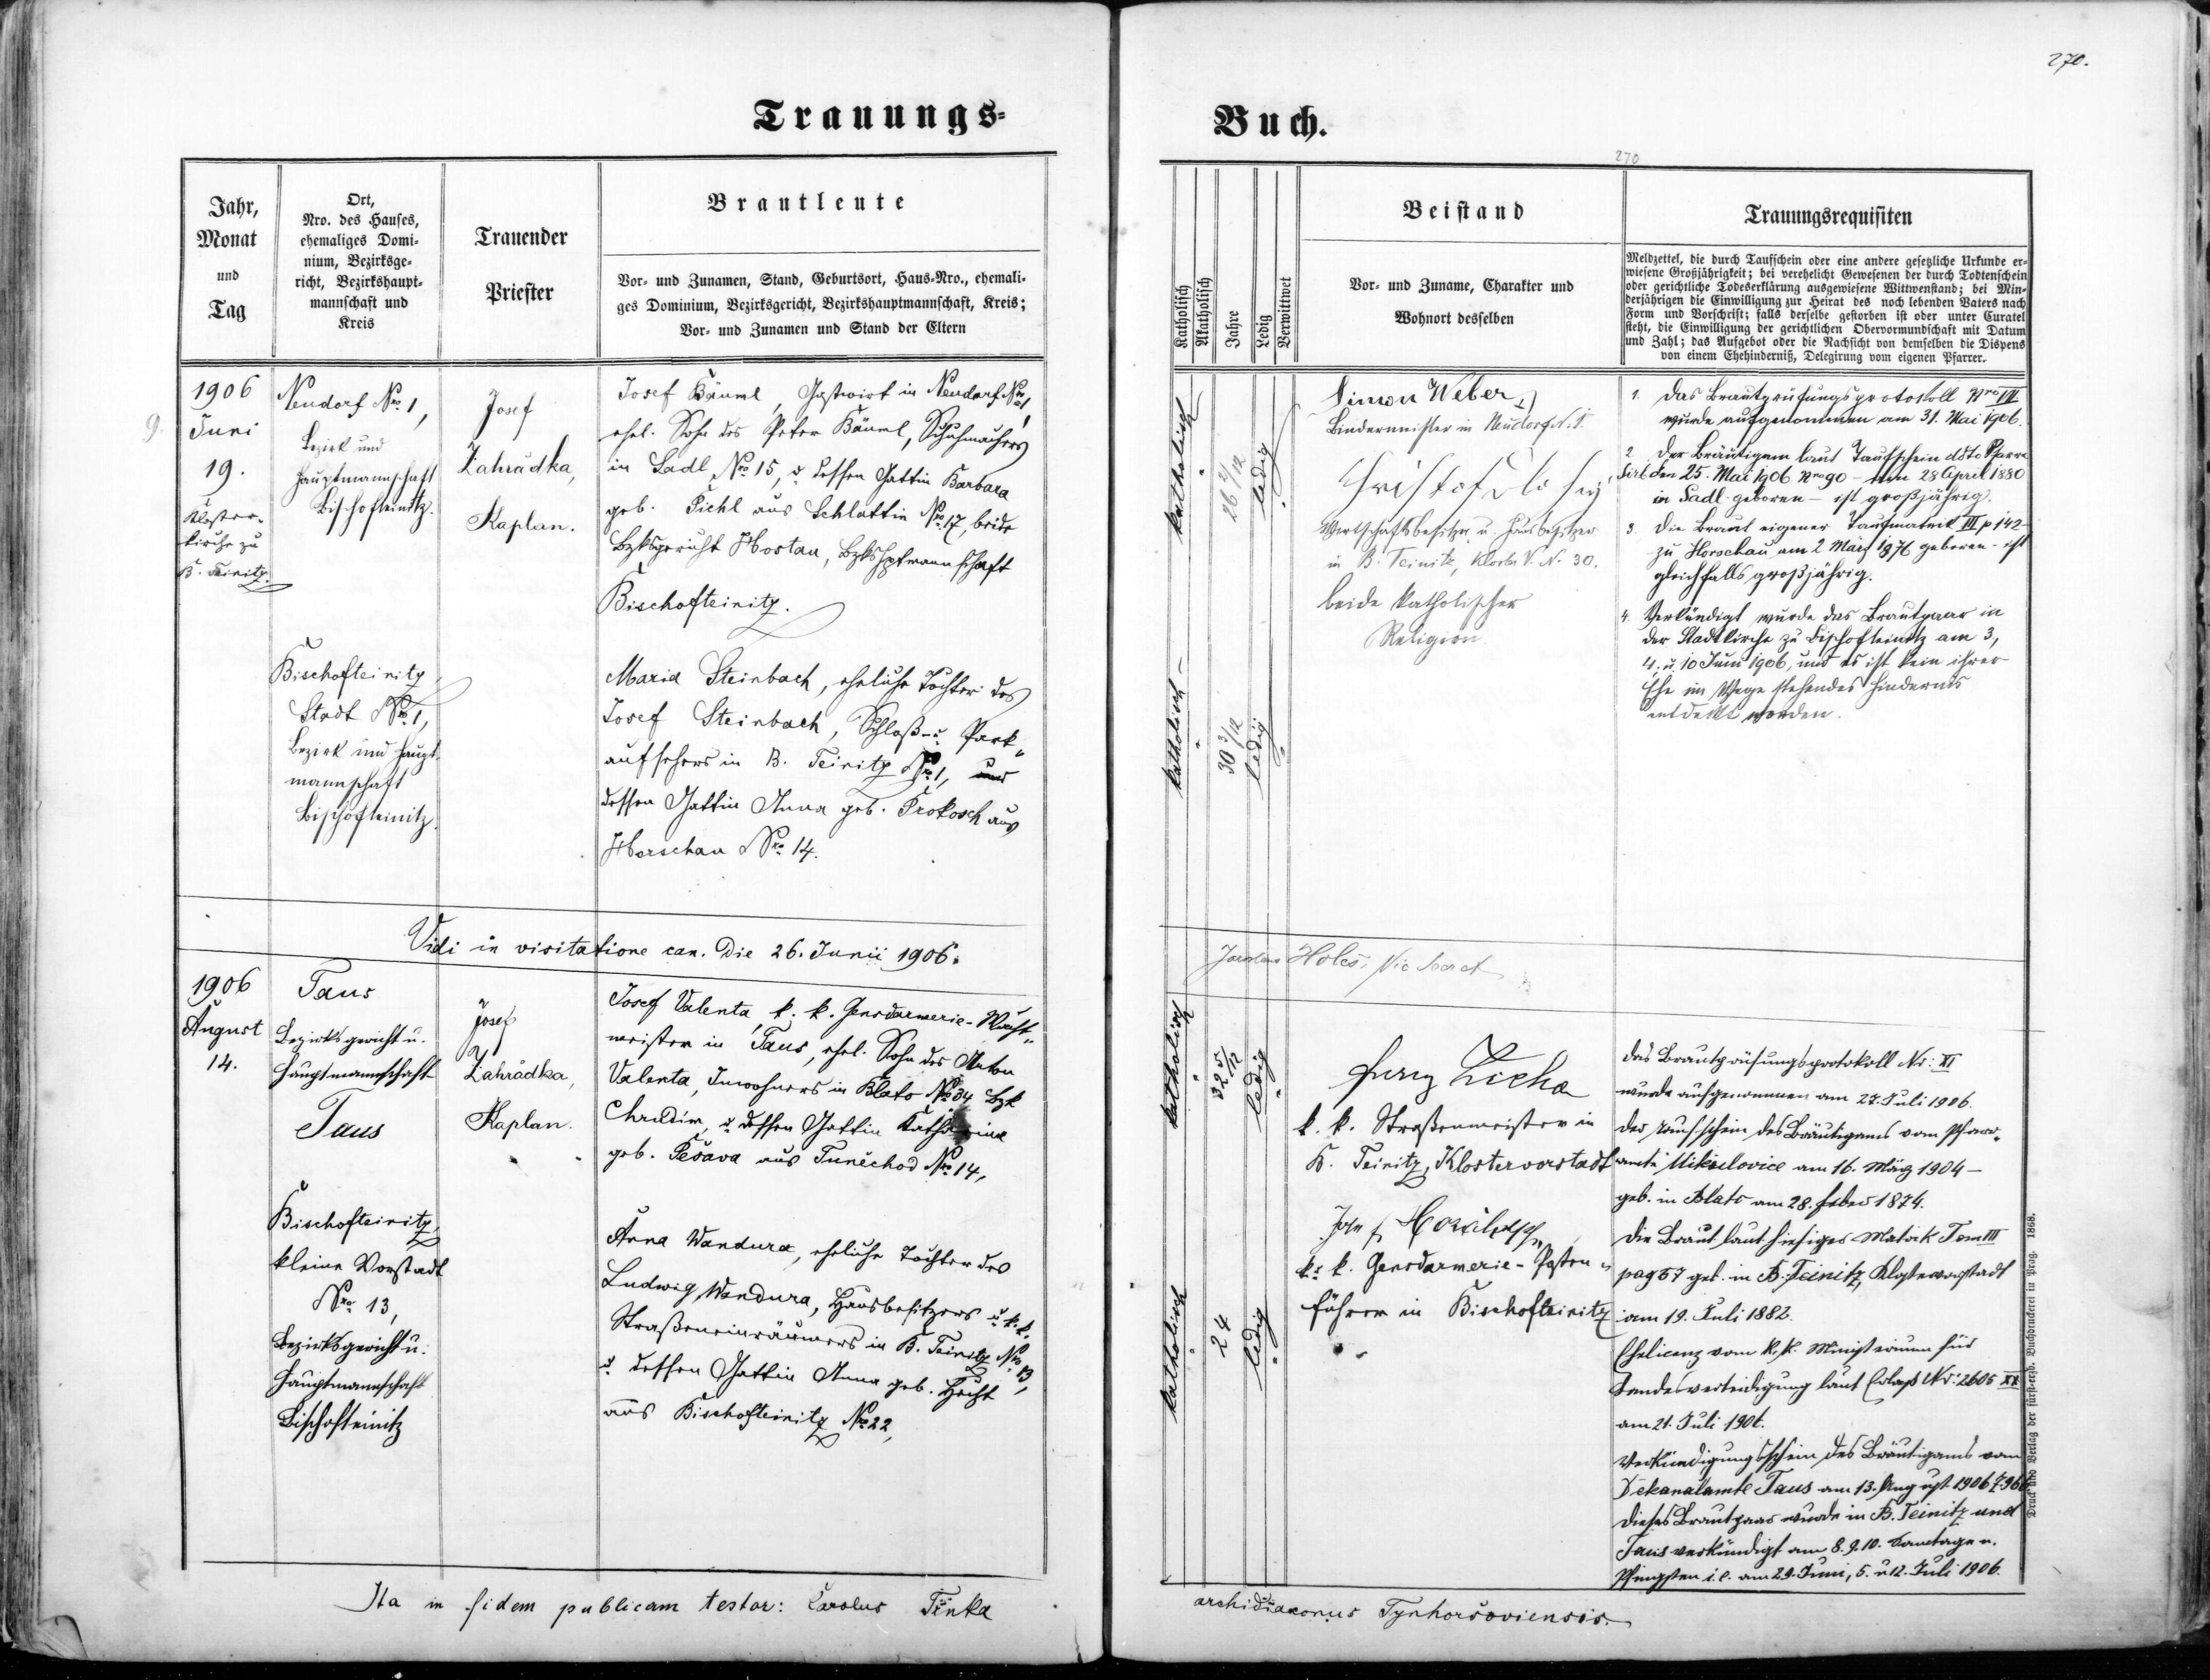 270.
Trauungs-
Buch.
270
Jahr,
Monat
und
Tag
Ort,
Nro. des Hauses,
ehemaliges Domi-
nium, Bezirksge-
richt, Bezirkshaupt-
mannschaft und
Kreis
Trauender
Priester
Brautleute
Vor- und Zunamen, Stand, Geburtsort, Haus-Nro., ehemali-
ges Dominium, Bezirksgericht, Bezirkshauptmannschaft, Kreis;
Vor- und Zunamen und Stand der Eltern
Katholisch
Akatholisch
Jahre
Ledig
Verwittwet
Beistand
Vor- und Zuname, Charakter und
Wohnort desselben
Trauungsrequisiten
Meldzettel, die durch Taufschein oder eine andere gesetzliche Urkunde er-
wiesene Großjährigkeit; bei verehelicht Gewesenen der durch Todtenschein
oder gerichtliche Todeserklärung ausgewiesene Wittwenstand; bei Min-
derjährigen die Einwilligung zur Heirat des noch lebenden Vaters nach
Form und Vorschrift; falls derselbe gestorben ist oder unter Curatel
steht, die Einwilligung der gerichtlichen Obervormundschaft mit Datum
und Zahl; das Aufgebot oder die Nachsicht von demselben die Dispens
von einem Ehehinderniß, Delegirung vom eigenen Pfarrer.
9.
1906
Juni
19.
Kloster-
kirche zu
B. Teinitz.
Neudorf Nro. 1,
Bezirk und
Hauptmannschaft
Bischofteinitz.
Josef
Zahrádka,
Kaplan.
Josef Bäuml, Gastwirt in Neudorf Nro. 1,
ehel. Sohn des Peter Bäuml, Schuhmachers
in Sadl Nro. 15, u. dessen Gattin Barbara
geb. Pichl aus Schlattin Nro. 17, beide
Bzksgericht Hostau, Bzkshptmannschaft
Bischofteinitz.
Bischofteinitz,
Stadt Nro. 1,
Bezirk und Haupt-
mannschaft
Bischofteinitz.
Maria Steinbach, eheliche Tochter des
Josef Steinbach, Schloß- u. Park-
aufsehers in B. Teinitz Nro. 1, und
dessen Gattin Anna geb. Prokosch aus
Horschau Nro. 14.
katholisch
26 2/12
ledig
katholisch
30 3/12
ledig
Simon Weber,
Bindermeister in Neudorf N. 1.
Wirtschaftsbesitzer u. Hausbesitzer
in B. Teinitz, Kloster V. N. 30.
beide katholischer
Religion.
1. Das Brautprüfungsprotokoll Nro VIII
wurde aufgenommen am 31. Mai 1906.
2. Der Bräutigam laut Taufschein ddto Pfarre
Sirb den 25. Mai 1906 Nro 90 – am 28 April 1880
in Sadl geboren – ist großjährig.
3. Die Braut eigener Taufmatrik III p 142
zu Horschau am 2 März 1876 geboren – ist
gleichfalls großjährig.
4. Verkündigt wurde das Brautpaar in
der Stadtkirche zu Bischofteinitz am 3,
4, u. 10 Juni 1906, und es ist kein ihrer
Ehe im Wege stehendes Hindernis
entdeckt worden.
Vidi in visitatione can. Die 26. Junii 1906.
Jaroslaus Holes, Vic Secret
1906
August
14.
Taus
Bezirksgericht u.
Hauptmannschaft
Taus
Josef
Zahrádka,
Kaplan.
Josef Valenta, k. k. Gensdarmerie-Wacht-
meister in Taus, ehel. Sohn des Anton
Valenta, Inwohners in Blato Nro 34 Bzk
Chrudim, u. dessen Gattin Katharina
geb. Pešava aus Tuněchod Nro 14,
Bischofteinitz,
kleine Vorstadt
Nro. 13,
Bezirksgericht u.
Hauptmannschaft
Bischofteinitz
Anna Wandura, eheliche Tochter des
Ludwig Wandura, Hausbesitzers u. k. k.
Straßeneinräumers in B. Teinitz Nro. 13,
u. dessen Gattin Anna geb. Hecht
aus Bischofteinitz Nro 22,
katholisch
32 5/12
ledig
katholisch
24
ledig
Franz Zicha
k. k. Straßenmeister in
B. Teinitz, Klostervorstadt
Josef
k. k. Gensdarmerie-Posten-
führer in Bischofteinitz
Das Brautprüfungsprotokoll Nr: XI
wurde aufgenommen am 27. Juli 1906.
Der Taufschein des Bräutigams vom Pfarr-
amte Mikulovice am 16. März 1904 –
geb. in Blato am 28. Feber 1874.
Die Braut laut hiesiger Matrik Tom III
pag 57 geb. in B. Teinitz, Klostervorstadt
am 19. Juli 1882.
Ehelicenz vom k. k. Ministerium für
Landesverteidigung laut Erlaß Nr: 2605 XX
am 21. Juli 1906.
Verkündigungsschein des Bräutigams vom
Dekanalamte Taus am 13. August 1906 Z 966
Dieses Brautpaar wurde in B. Teinitz und
Taus verkündigt am 8. 9. 10. Sonntage n.
Pfingsten i. e. am 29. Juni, 5. u. 12. Juli 1906.
Druck und Verlag der fürst-erzb. Buchdruckerei in Prag. 1868.
Ita in fidem publicam testor: Carolus Tinka
archidiaconus Tynhoršoviensis.